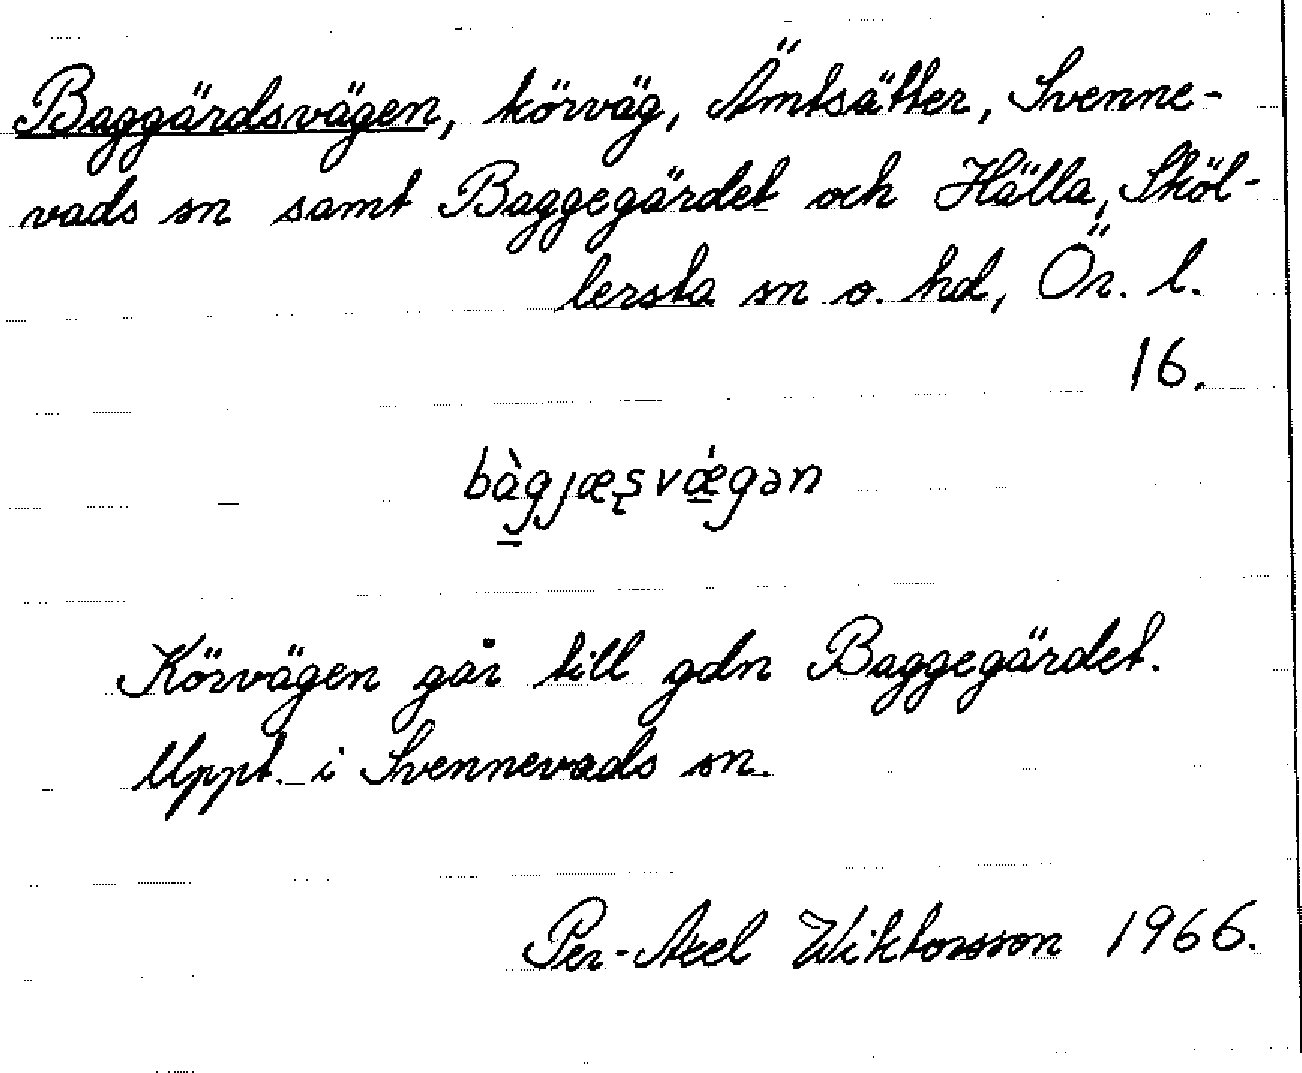 Baggärdsvägen, körväg, Ämtsätter, Svenne-
vads sn samt Baggegärdet och Hälla, Sköl-
lersta sn o. hd, Ör. l.
16.
bàgjæʂvǽgən
Körvägen går till gdn Baggegärdet.
Uppt. i Svennevads sn.
Per-Axel Wiktorsson 1966.